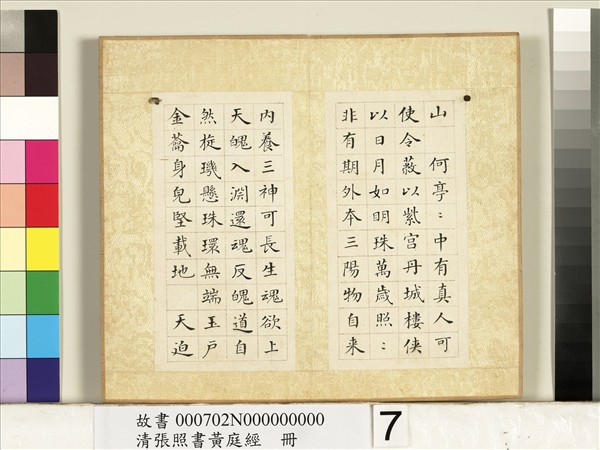 山　何亭〻中有真人可
使令蔽以紫宮丹城樓俠
以日月如明珠萬歲照〻
非有期外夲三陽物自来
内養三神可長生魂欲上
天魄入淵還魂反魄道自
然旋璣懸珠環無端玉戶
金蘥身皃堅載地　天迫
故書 000702N000000000
清張照書黃庭經　冊
7